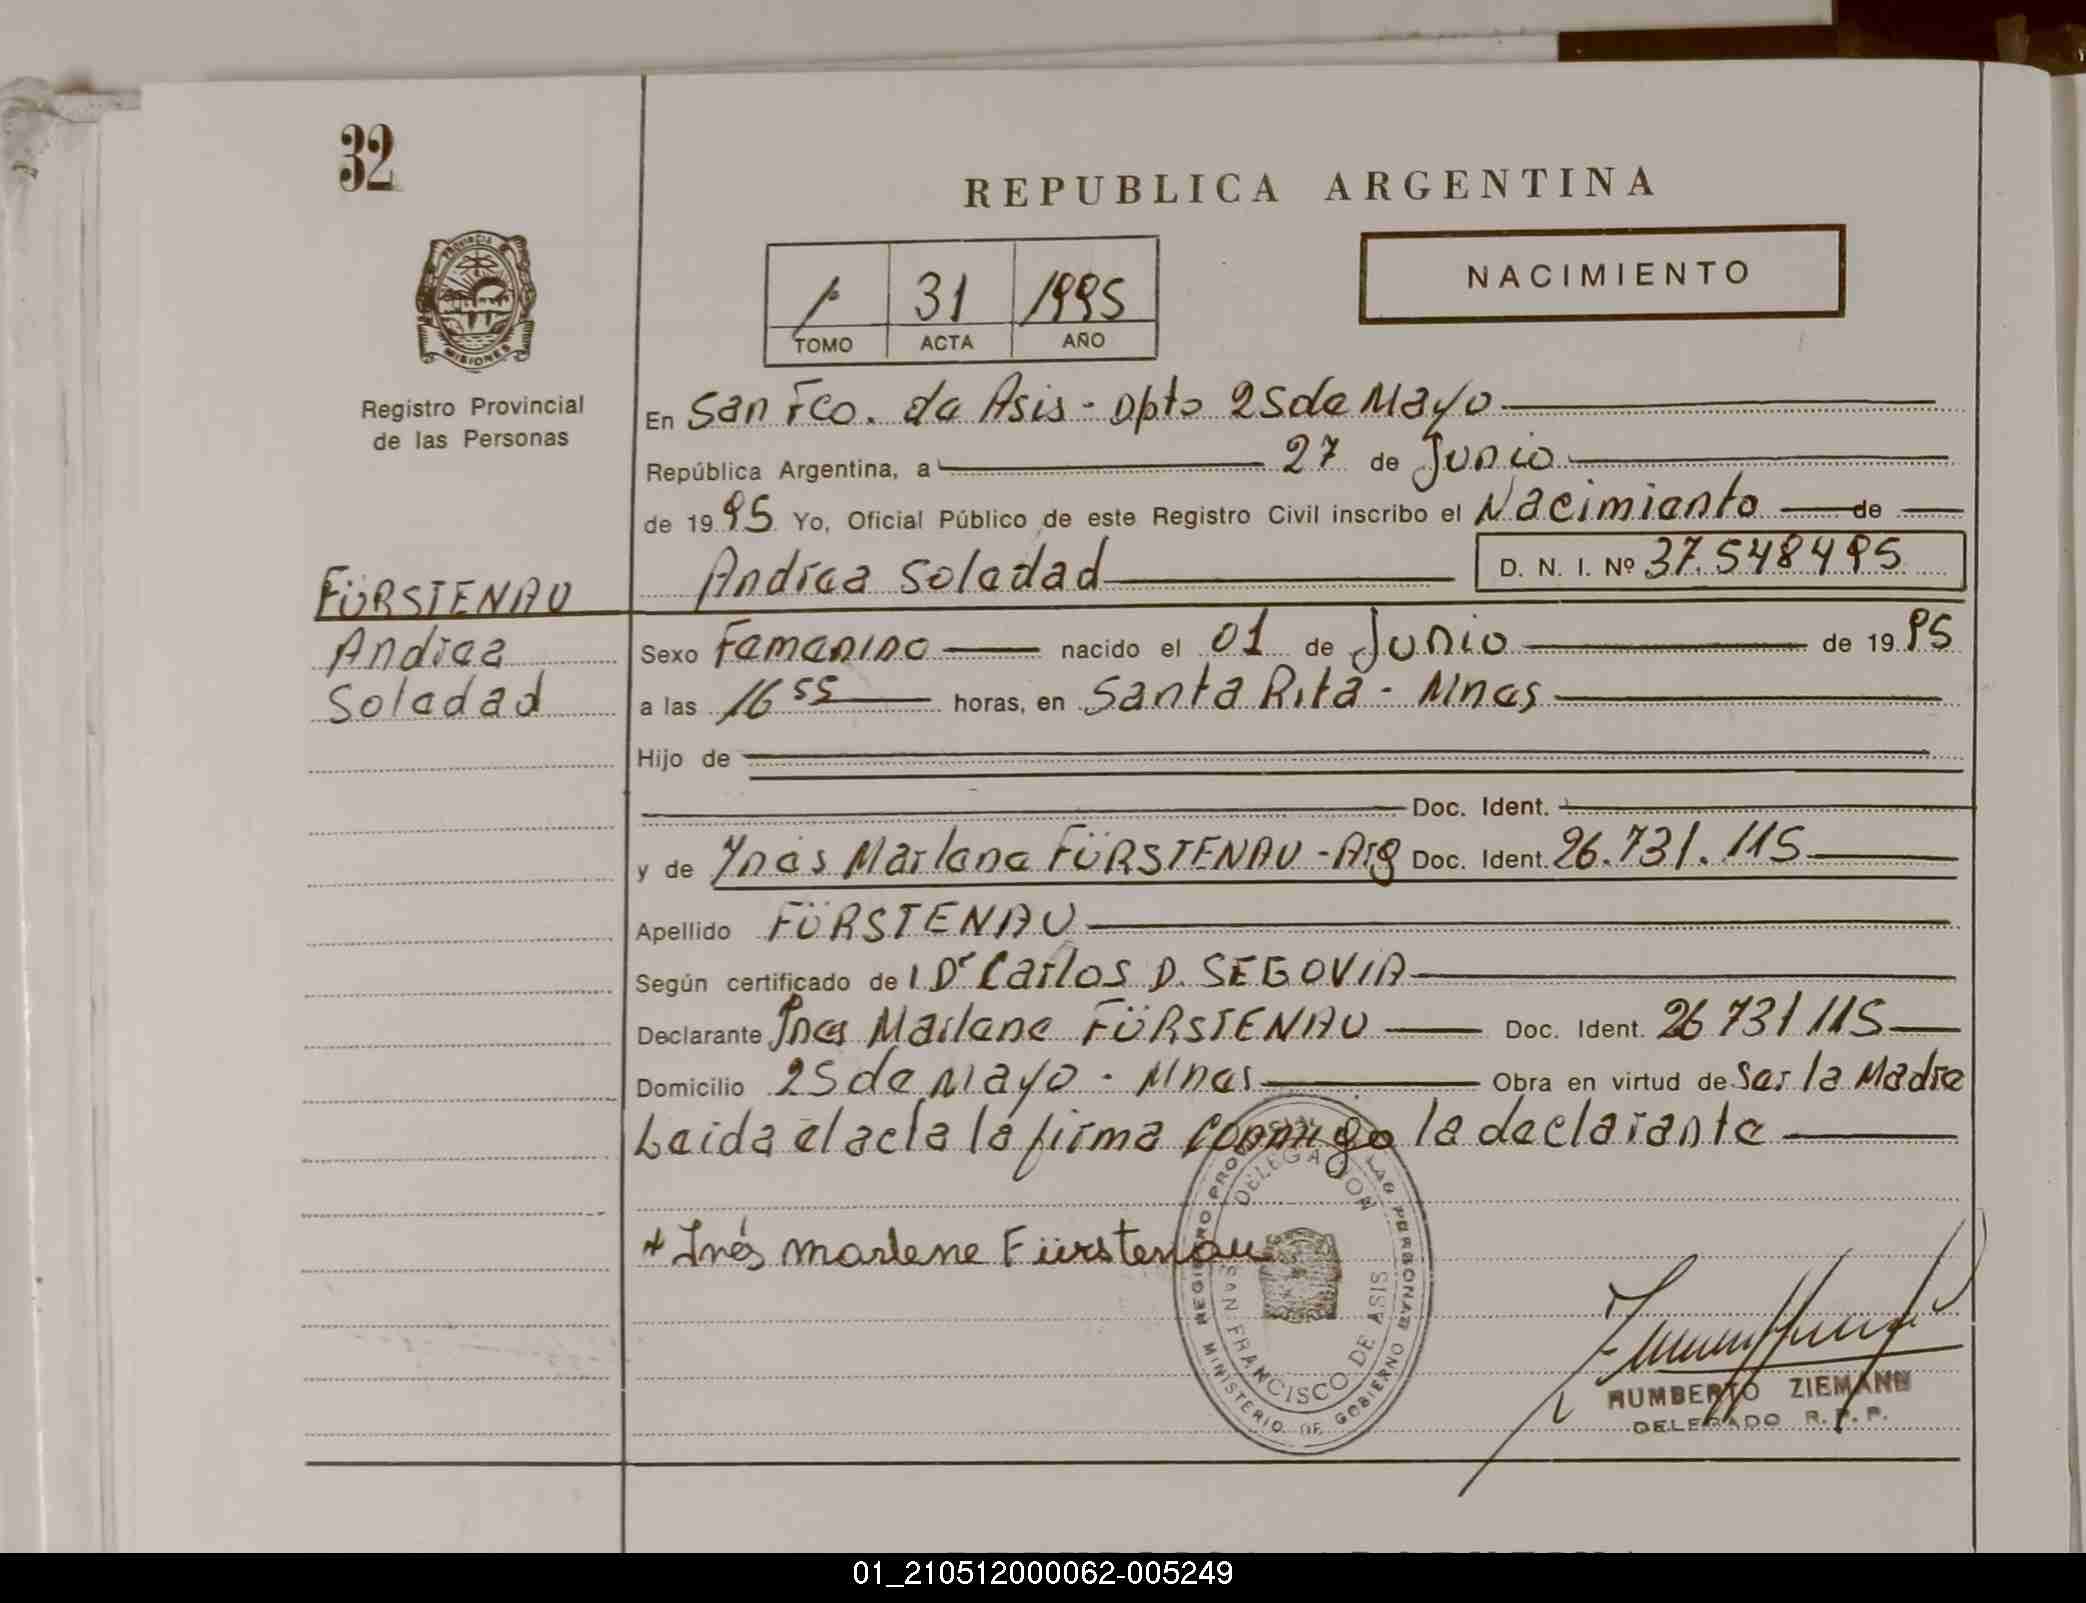 32
REPUBLICA ARGENTINA
PROVINCIA
MISIONES
Registro Provincial
de las Personas
NACIMIENTO
1º 31 1995
TOMO ACTA AÑO
En San Fco. de Asis - Dpto 25 de Mayo
República Argentina, a 27 de Junio
de 1995 Yo, Oficial Público de este Registro Civil inscribo el Nacimiento de
Andrea Soledad D. N. I. Nº 37.548495
FÜRSTENAU
Andrea
Soledad
Sexo Femenino nacido el 01 de Junio de 1995
a las 16 55 horas, en Santa Rita - Mnes
Hijo de
Doc. Ident.
y de Ynés Marlene FÜRSTENAU - Arg Doc. Ident. 26.731.115
Apellido FÜRSTENAU
Según certificado de l Dr Carlos D. SEGOVIA
Declarante Ynes Marlene FÜRSTENAU Doc. Ident. 26 731 115
Domicilio 25 de Mayo - Mnes Obra en virtud de Ser la Madre
Leida el acta la firma conmigo la declarante
Inés marlene Fürstenau
REGISTRO PROVINCIAL LAS PERSONAS
DELEGACION
SAN FRANCISCO DE ASIS
MINISTERIO DE GOBIERNO
RUMBERTO ZIEMANN
DELEGADO R. P. P.
01_210512000062-005249